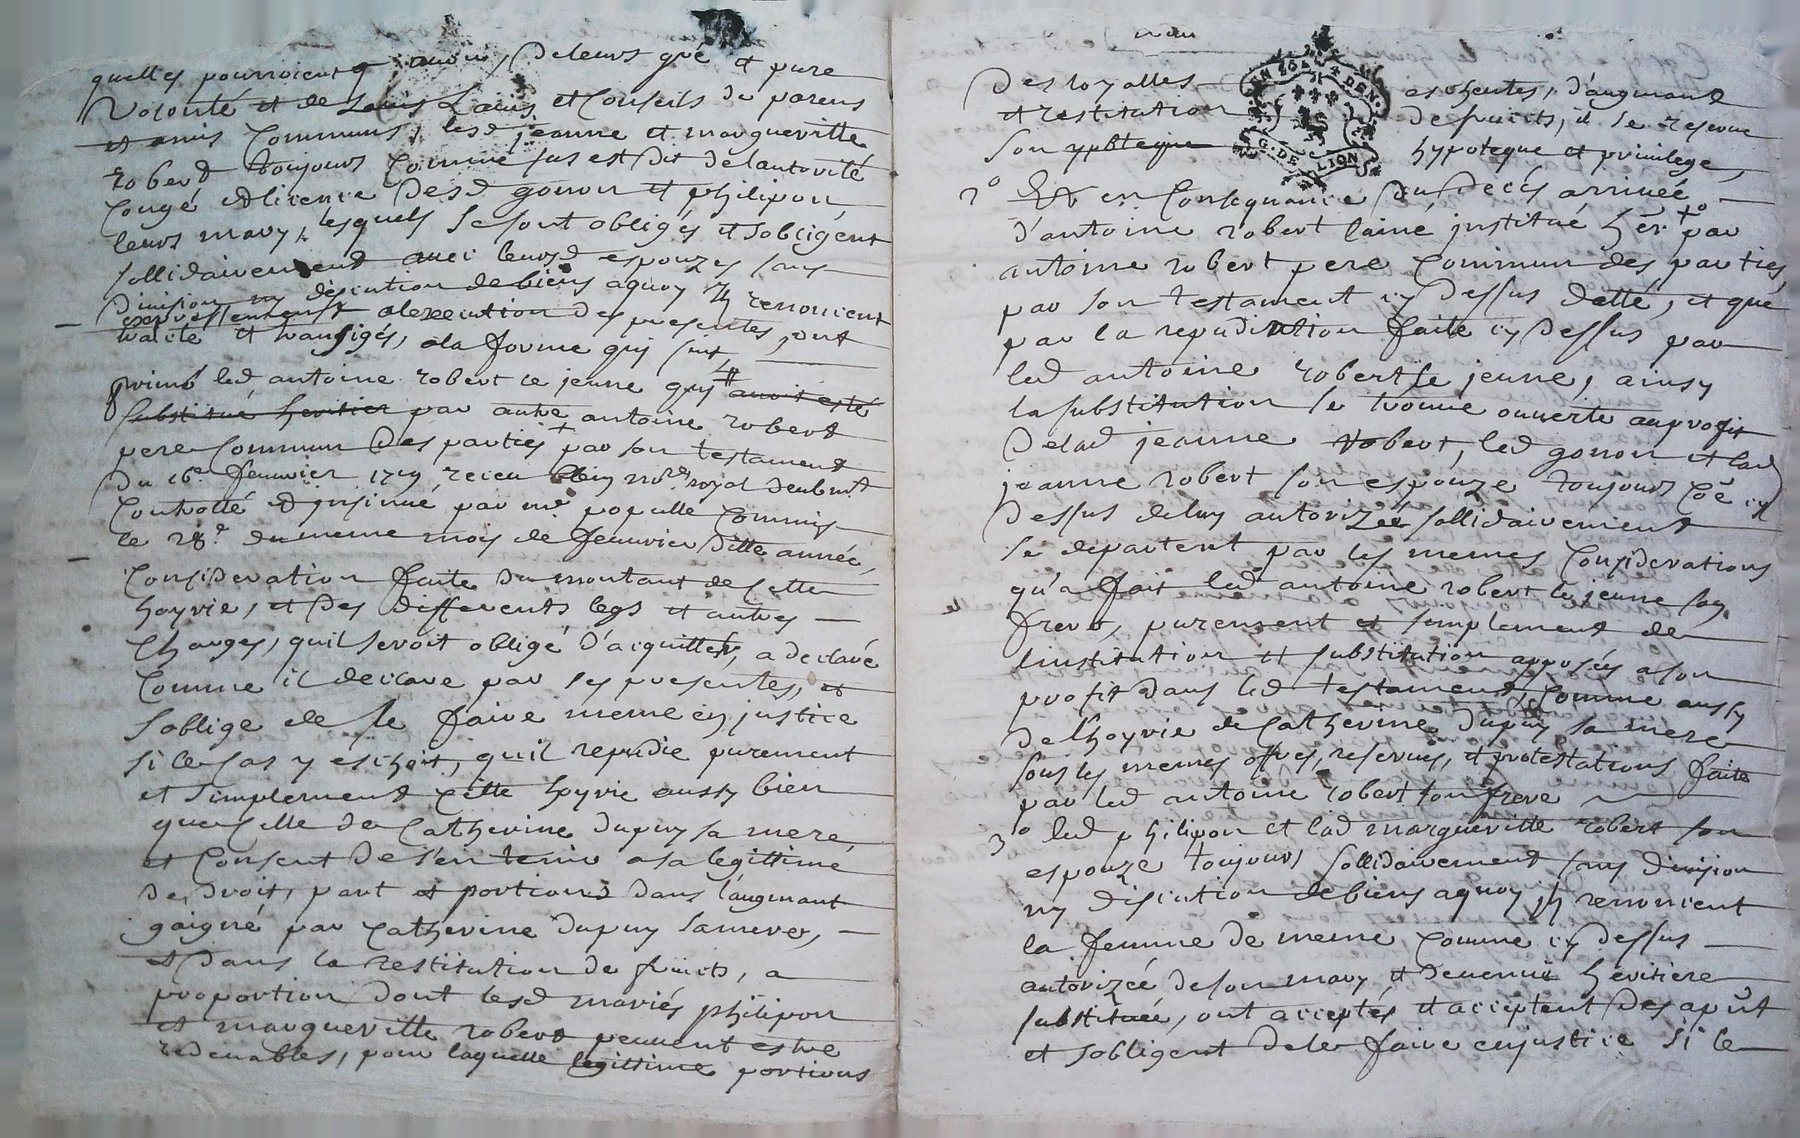 quelles pourroient avoir, de leurs gré et pure
Volonté et de Leurs Laius et Conseils de parens
et amis Communs, lesd jeanne et margueritte
robert toujours Comme sus est dit de lautorité
Congé et licence desd gonon et philipon
leurs mary, lesquels se sont obligés et sobligent
sollidairement avec leursd espouzes sans
Division ny discution de biens aquoy Ils renoncent
expressement alexecution des presentes, ont
traité et transigés, ala forme qui suit
primò led antoine robert le jeune qui avoit esté
substitué heritier par autre antoine robert
pere Commun des parties par son testament
du 16e. feuvrier 1719 receu no.re royal
Controllé et Insinué par me populle Commis
le 28e. du meme mois de feuvrier ditte année,
Consideration faite du montant de Cette
hoyrie, et des differents legs et autres
Charges, quil seroit obligé d'acquitter, a declaré
Comme il declare par ses presentes, et
soblige de le faire meme en justice
si le Cas y eschoit, quil repudie purement
et simplement Cette hoyrie aussy bien
que Celle de Catherine dupuy sa mere
et Consent de s'en tenir a sa legittime
de droit, part et portions dans l'augmant
gaigné par Catherine dupuy sa mere,
et dans la restitution de fruits, a
proportion dont lesd mariés philipon
et margueritte robert peuvent estre
redevables, pour laquelle legittime portions
Des loyalles escheutes, d'augmant
et restitution de fruits, il se reserve
son hypoteque et privilege,
GEN. DE LION
2o Et en Consequance du deces arrivée
d'antoine robert lainé institué her. par
antoine robert pere Commun des parties,
par son testament cy dessus datté, et que
par la repudiation faite cy dessus par
led antoine robert le jeune, ainsy
la substitution se trouve ouverte au profit
de lad jeanne robert, led gonon et lad
jeanne robert son espouze toujours Coe cy
dessus de luy autorizée sollidairement
se departent par les memes Considerations
qu'a fait led antoine robert le jeune son
frere, purement et simplement de
linstitution et substitution apposés a son
profit dans led testament, Comme aussy
de l'hoyrie de Catherine dupuy sa mere
sous les memes offres, reserves, et protestations faite
par led antoine robert son frere
3o led philipon et lad margueritte robert son
espouze toujours sollidairement sans division
ny discution de biens aquoy Ils renoncent
la femme de meme Comme cy dessus
autorizée de son mary et devenue heritiere
substituée, ont acceptés et acceptent des apnt
et sobligent de le faire en justice si le